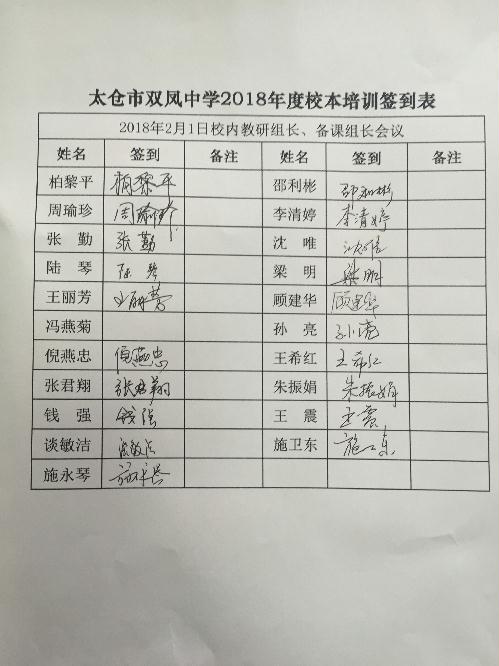 太仓市双凤中学2018年度校本培训签到表
2018年2月1日校内教研组长、备课组长会议
姓名 签到 备注 姓名 签到 备注
柏黎平 柏黎平 邵利彬 邵利彬
周瑜珍 周瑜珍 李清婷 李清婷
张勤 张勤 沈唯 沈唯
陆琴 陆琴 梁明 梁明
王丽芳 王丽芳 顾建华 顾建华
冯燕菊 孙亮 孙亮
倪燕忠 倪燕忠 王希红 王希红
张君翔 张君翔 朱振娟 朱振娟
钱强 钱强 王震 王震
谈敏洁 谈敏洁 施卫东 施卫东
施永琴 施永琴